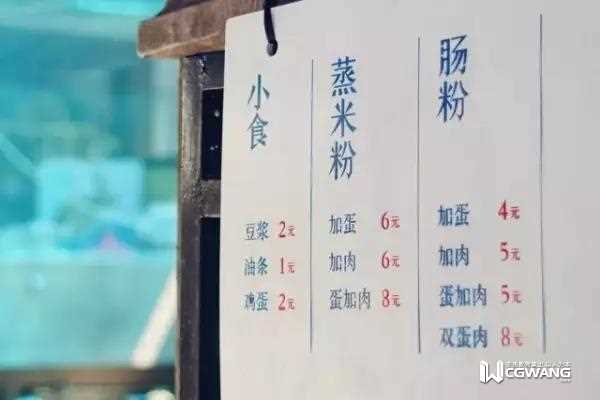 小食
豆浆 2元
油条 1元
鸡蛋 2元
蒸米粉
加蛋 6元
加肉 6元
蛋加肉 8元
肠粉
加蛋 4元
加肉 5元
蛋加肉 5元
双蛋肉 8元
CGWANG